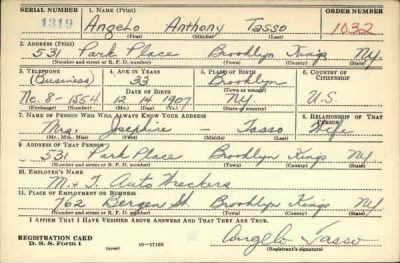 SERIAL NUMBER 1. NAME (Print) ORDER NUMBER
1319 Angelo Anthony Tasso 1032
(First) (Middle) (Last)
2. ADDRESS (Print)
531 Park Place Brooklyn Kings Ny
(Number and street or R. F. D. number) (Town) (County) (State)
3. TELEPHONE 4. AGE IN YEARS 5. PLACE OF BIRTH 6. COUNTRY OF CITIZENSHIP
(Business) 33 Brooklyn
DATE OF BIRTH (Town or county)
Ne. 8-1554 12 14 1907 Ny U.S.
(Exchange) (Number) (Mo.) (Day) (Yr.) (State or country)
7. NAME OF PERSON WHO WILL ALWAYS KNOW YOUR ADDRESS 8. RELATIONSHIP OF THAT PERSON
Mrs. Josephine — Tasso Wife
(Mr., Mrs., Miss) (First) (Middle) (Last)
9. ADDRESS OF THAT PERSON
531 Park Place Brooklyn Kings Ny
(Number and street or R. F. D. number) (Town) (County) (State)
10. EMPLOYER'S NAME
M. & T. Auto Wreckers
11. PLACE OF EMPLOYMENT OR BUSINESS
762 Bergen St Brooklyn Kings Ny
(Number and street or R. F. D. number) (Town) (County) (State)
I AFFIRM THAT I HAVE VERIFIED ABOVE ANSWERS AND THAT THEY ARE TRUE.
REGISTRATION CARD
D. S. S. Form 1 (over) 16—17105 Angelo Tasso
(Registrant's signature)